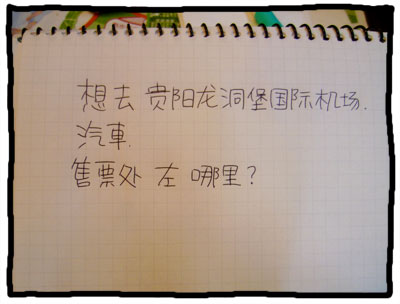 想去 贵阳龙洞堡国际机场.
汽車.
售票处 左 哪里?